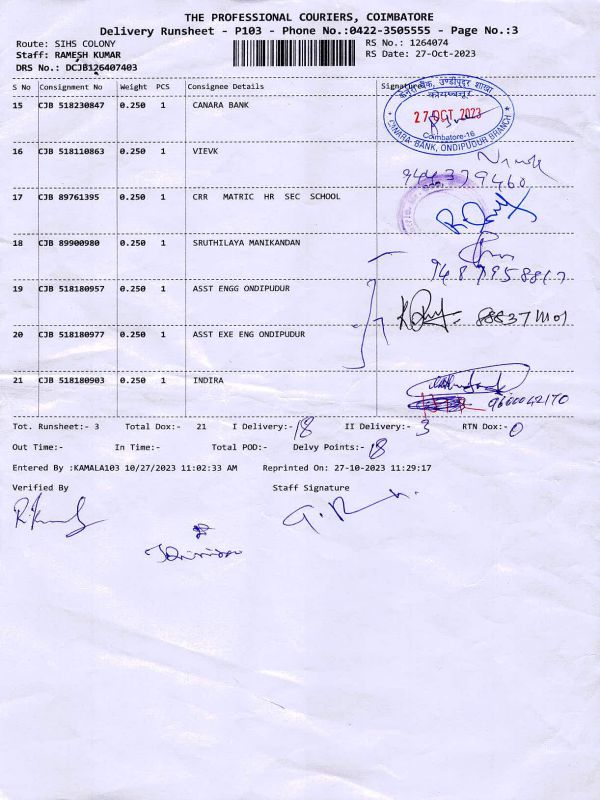 THE PROFESSIONAL COURIERS, COIMBATORE
Delivery Runsheet - P103 - Phone No.:0422-3505555 - Page No.:3
Route: SIHS COLONY
RS No.: 1264074
Staff: RAMESH KUMAR
RS Date: 27-Oct-2023
DRS No.: DCJB126407403
S No Consignment No Weight PCS Consignee Details Signature
15 CJB 518230847 0.250 1 CANARA BANK
केनरा बैंक, उण्डीपुदूर शाखा
कोयम्बत्तूर
27 OCT 2023
Coimbatore-16
CANARA BANK, ONDIPUDUR BRANCH
16 CJB 518110863 0.250 1 VIEVK
9444379460
17 CJB 89761395 0.250 1 CRR MATRIC HR SEC SCHOOL
18 CJB 89900980 0.250 1 SRUTHILAYA MANIKANDAN
19 CJB 518180957 0.250 1 ASST ENGG ONDIPUDUR
20 CJB 518180977 0.250 1 ASST EXE ENG ONDIPUDUR
21 CJB 518180903 0.250 1 INDIRA
9600042170
Tot. Runsheet:- 3 Total Dox:- 21 I Delivery:- 18 II Delivery:- 3 RTN Dox:- 0
Out Time:- In Time:- Total POD:- Delvy Points:- 18
Entered By :KAMALA103 10/27/2023 11:02:33 AM Reprinted On: 27-10-2023 11:29:17
Verified By Staff Signature